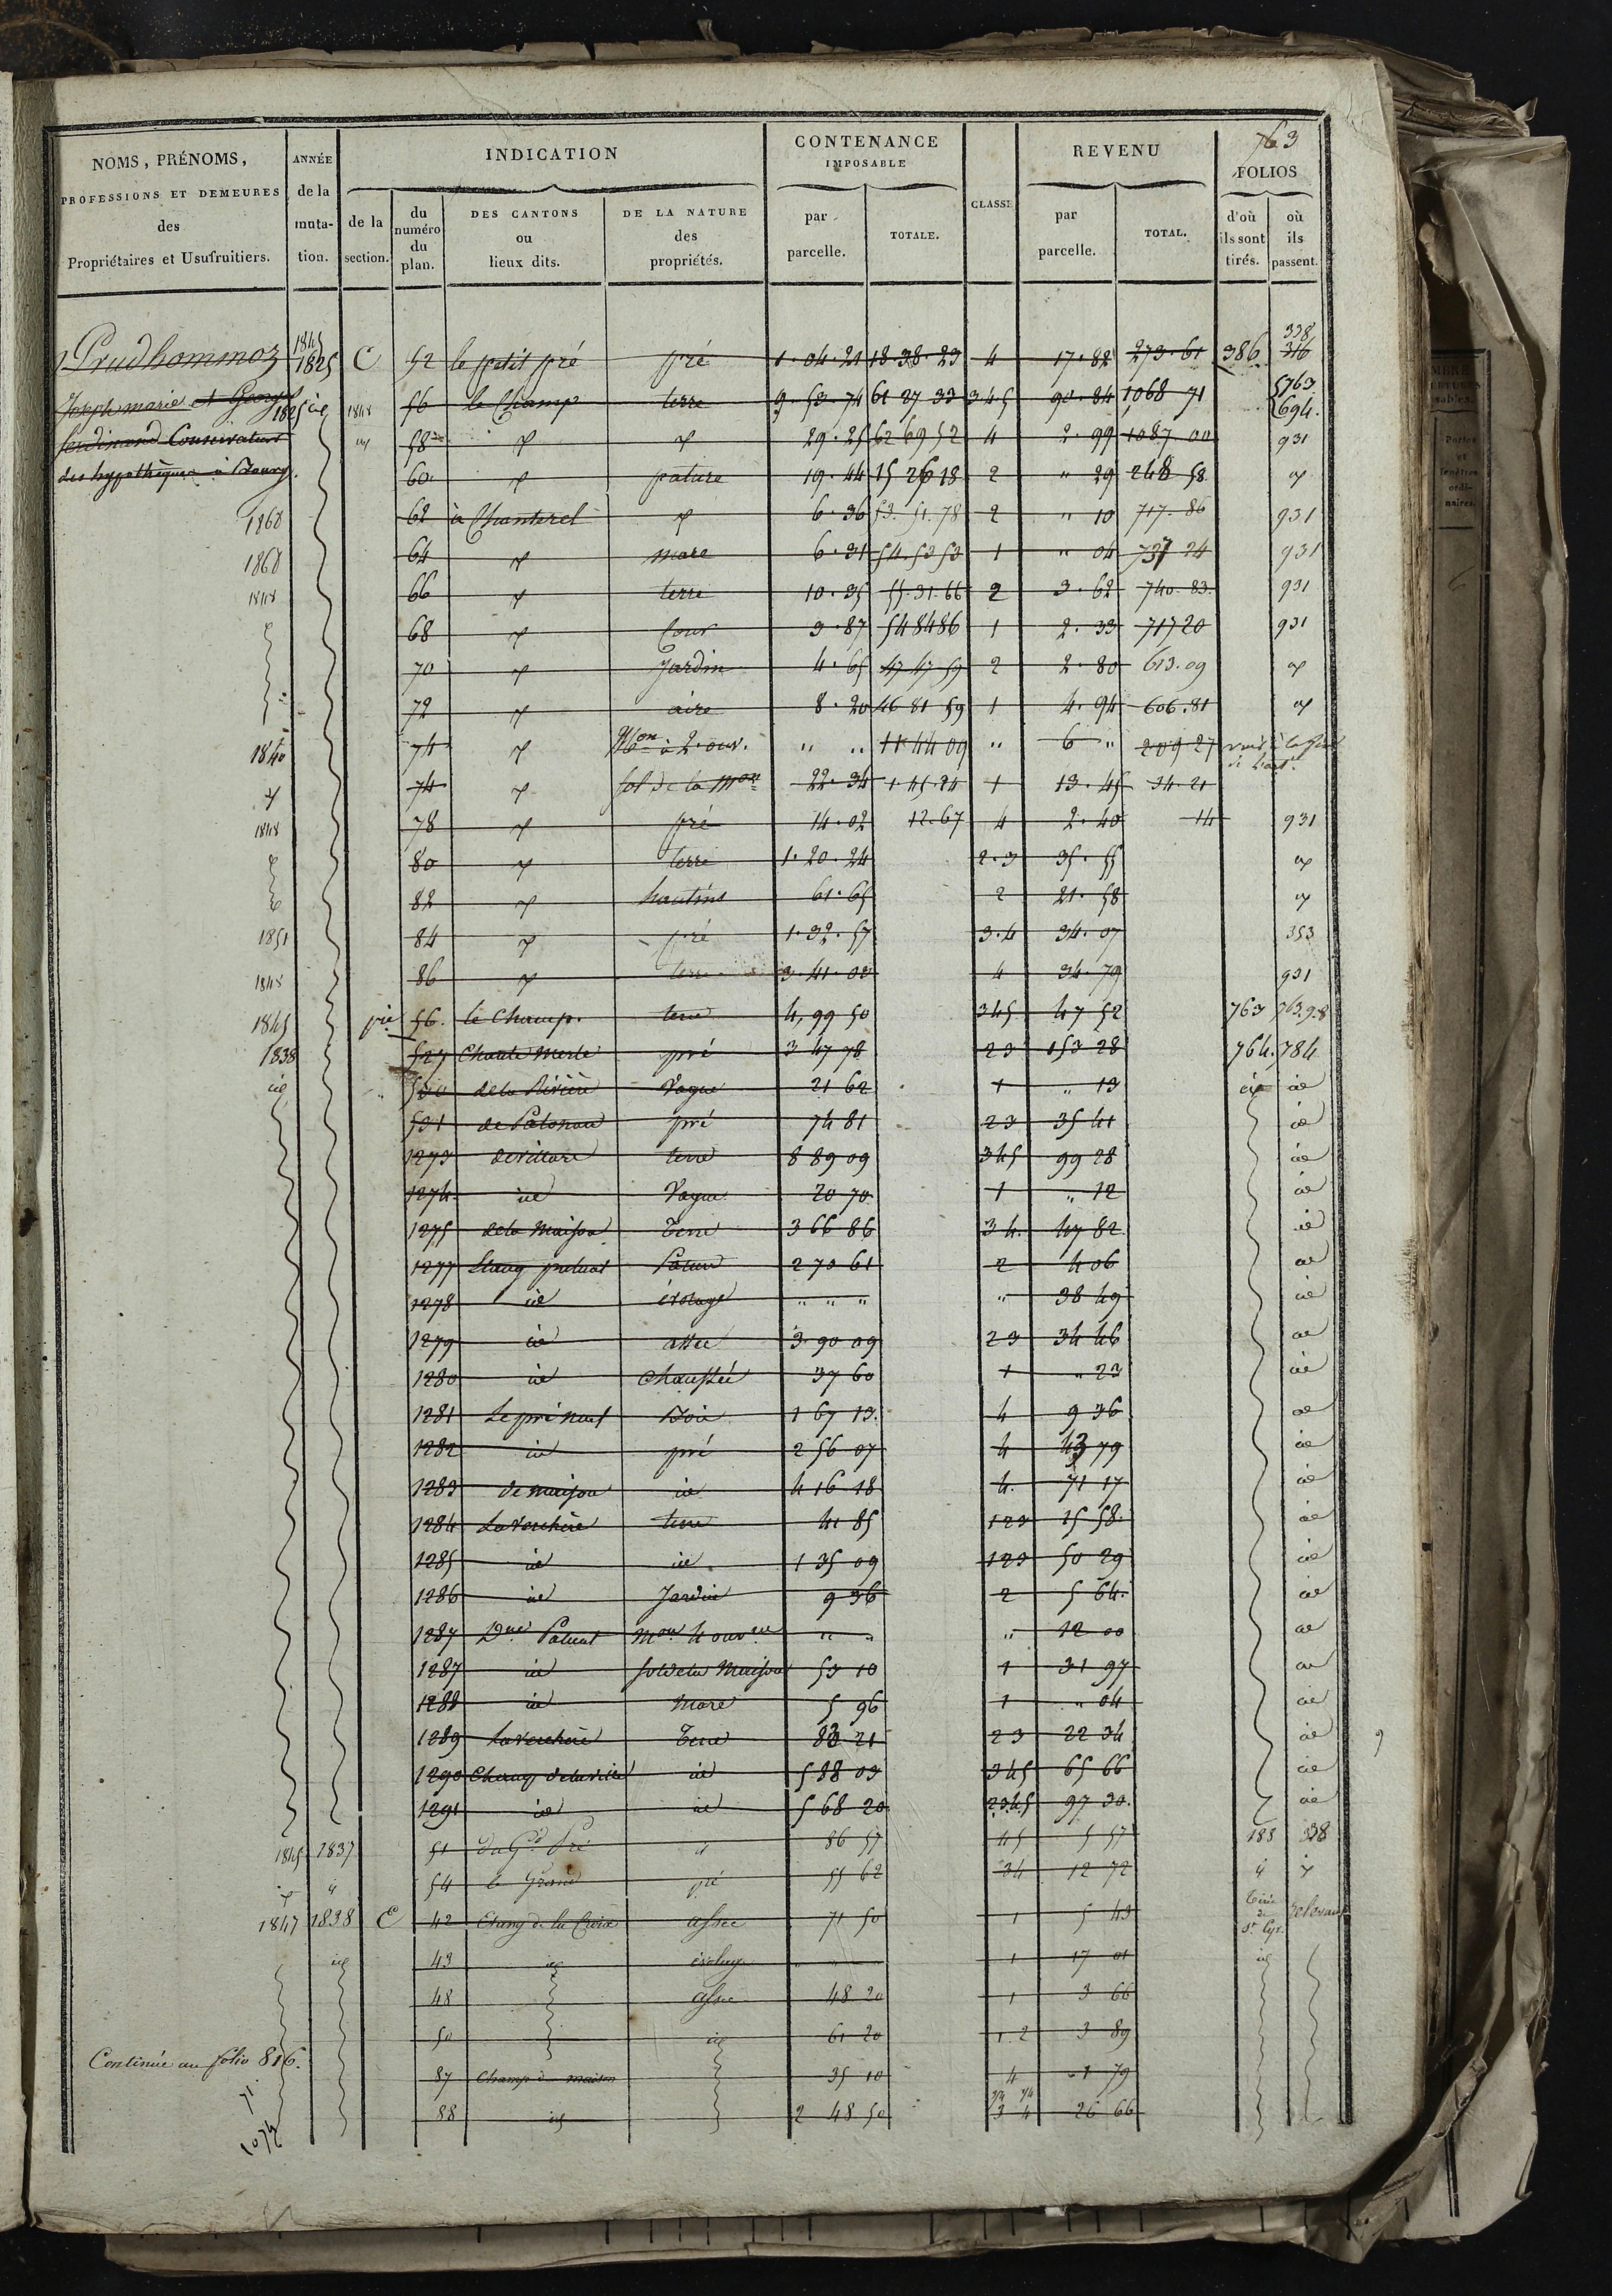 763
NOMS, PRÉNOMS, PROFESSIONS ET DEMEURES des Propriétaires et Usufruitiers.
ANNÉE de la muta- tion.
INDICATION
de la section.
du numéro du plan.
DES CANTONS ou lieux dits.
DE LA NATURE des propriétés.
CONTENANCE IMPOSABLE
par parcelle.
TOTALE.
CLASSE
REVENU
par parcelle.
TOTAL.
FOLIOS
d'où ils sont tirés.
où ils passent.
Prudhommoz
Joseph marie et
ferdinand Conservateur
des hypothèques à Bourg.
1845 1825 C 52 le petit pré pré 1. 04. 21 18. 38. 23 4 17. 82 273. 61 386 338 316
1825 1848 56 le Champ terre 9. 53. 74 61 27 33 345 90. 84 1068 71 763 694.
58 29. 25 62 69 52 4 2. 99 1087 00 931
60 pature 19. 44 15 26 18 2 " 29 248 58
1868 62 à Chanterel 6. 36 53. 51. 78 2 " 10 717. 86 931
1868 64 mare 6. 31 54. 53 53 1 " 04 737 24 931
1848 66 terre 10. 35 55. 31. 66 2 3. 62 740. 83 931
68 Cour 3. 87 54 84 86 1 2. 33 717 20 931
70 Jardin 4. 65 47 47 59 2 2. 80 613. 09
72 aire 8. 20 46 81 59 1 4. 94 606. 81
1840 74 Mon à 2. ouv. " " 11. 44 09 " 6 " 209 27
74 sol de la Mon 22. 34 1. 45. 24 1 13. 45 34. 21
1848 78 pré 14. 02 12. 67 4 2. 40 14 931
80 terre 1. 20. 24 2. 3 35. 55
82 hautins 61. 65 2 21. 58
1851 84 pré 1. 32. 57 3. 4 34. 07 353
1848 86 terre 3. 41. 08 4 34. 79 931
1845 pie 56. le Champ. terre 4, 99 50 345 47 52 763 763.9.8
1838 527 Chante Merle pré 3 47 78 23 153 28 764. 784
id 530 de la Rivière Vague 21 62 1 " 13 id id
531 pré 74 81 23 35 41 id
1273 terre 8 89 09 345 99 28 id
1274 id Vague 20 70 1 " 12 id
1275 de la Maison Terre 3 66 86 34. 47 82 id
1277 Etang Pature 2 70 61 2 4 06 id
1278 id évolage " " " " 38 49 id
1279 id assec 3 90 09 23 34 46 id
1280 id Chaussée 37 60 1 " 23 id
1281 Le pré neuf Bois 1 67 13. 4 9 36 id
1282 id pré 2 56 07 4 43 79 id
1283 de maison id 4 16 18 4. 71 17 id
1284 La Verchère terre 41 85 123 15 58. id
1285 id id 1 35 09 123 50 29 id
1286 id Jardin 9 36 2 5 64. id
1287 Mon 4 ouvres " " " 12 00 id
1287 id sol de la Maison 53 10 1 31 97 id
1288 id Mare 5 96 1 " 04 id
1289 La Verchère Terre 83 21 23 22 34 id
1290 Champ id 5 88 03 345 65 66 id
1291 id id 5 68 20 2345 97 30. id
1845 1837 51 du Gd Pré 86 57 45 5 57 183 338
54 le Grand pré 55 62 34 12 72
1847 1838 C 42 Etang de la Croix assec 71 50 1 5 43 St Cyr.
id 43 id évolage " " 1 17 01 id
48 assec 48 20 1 3 66
50 id 61 20 1. 2 3 89
87 Champ maison 35 10 4 1 79
88 id 2 48 50 3 4 26 66
Continuée au folio 816.
71.
1074